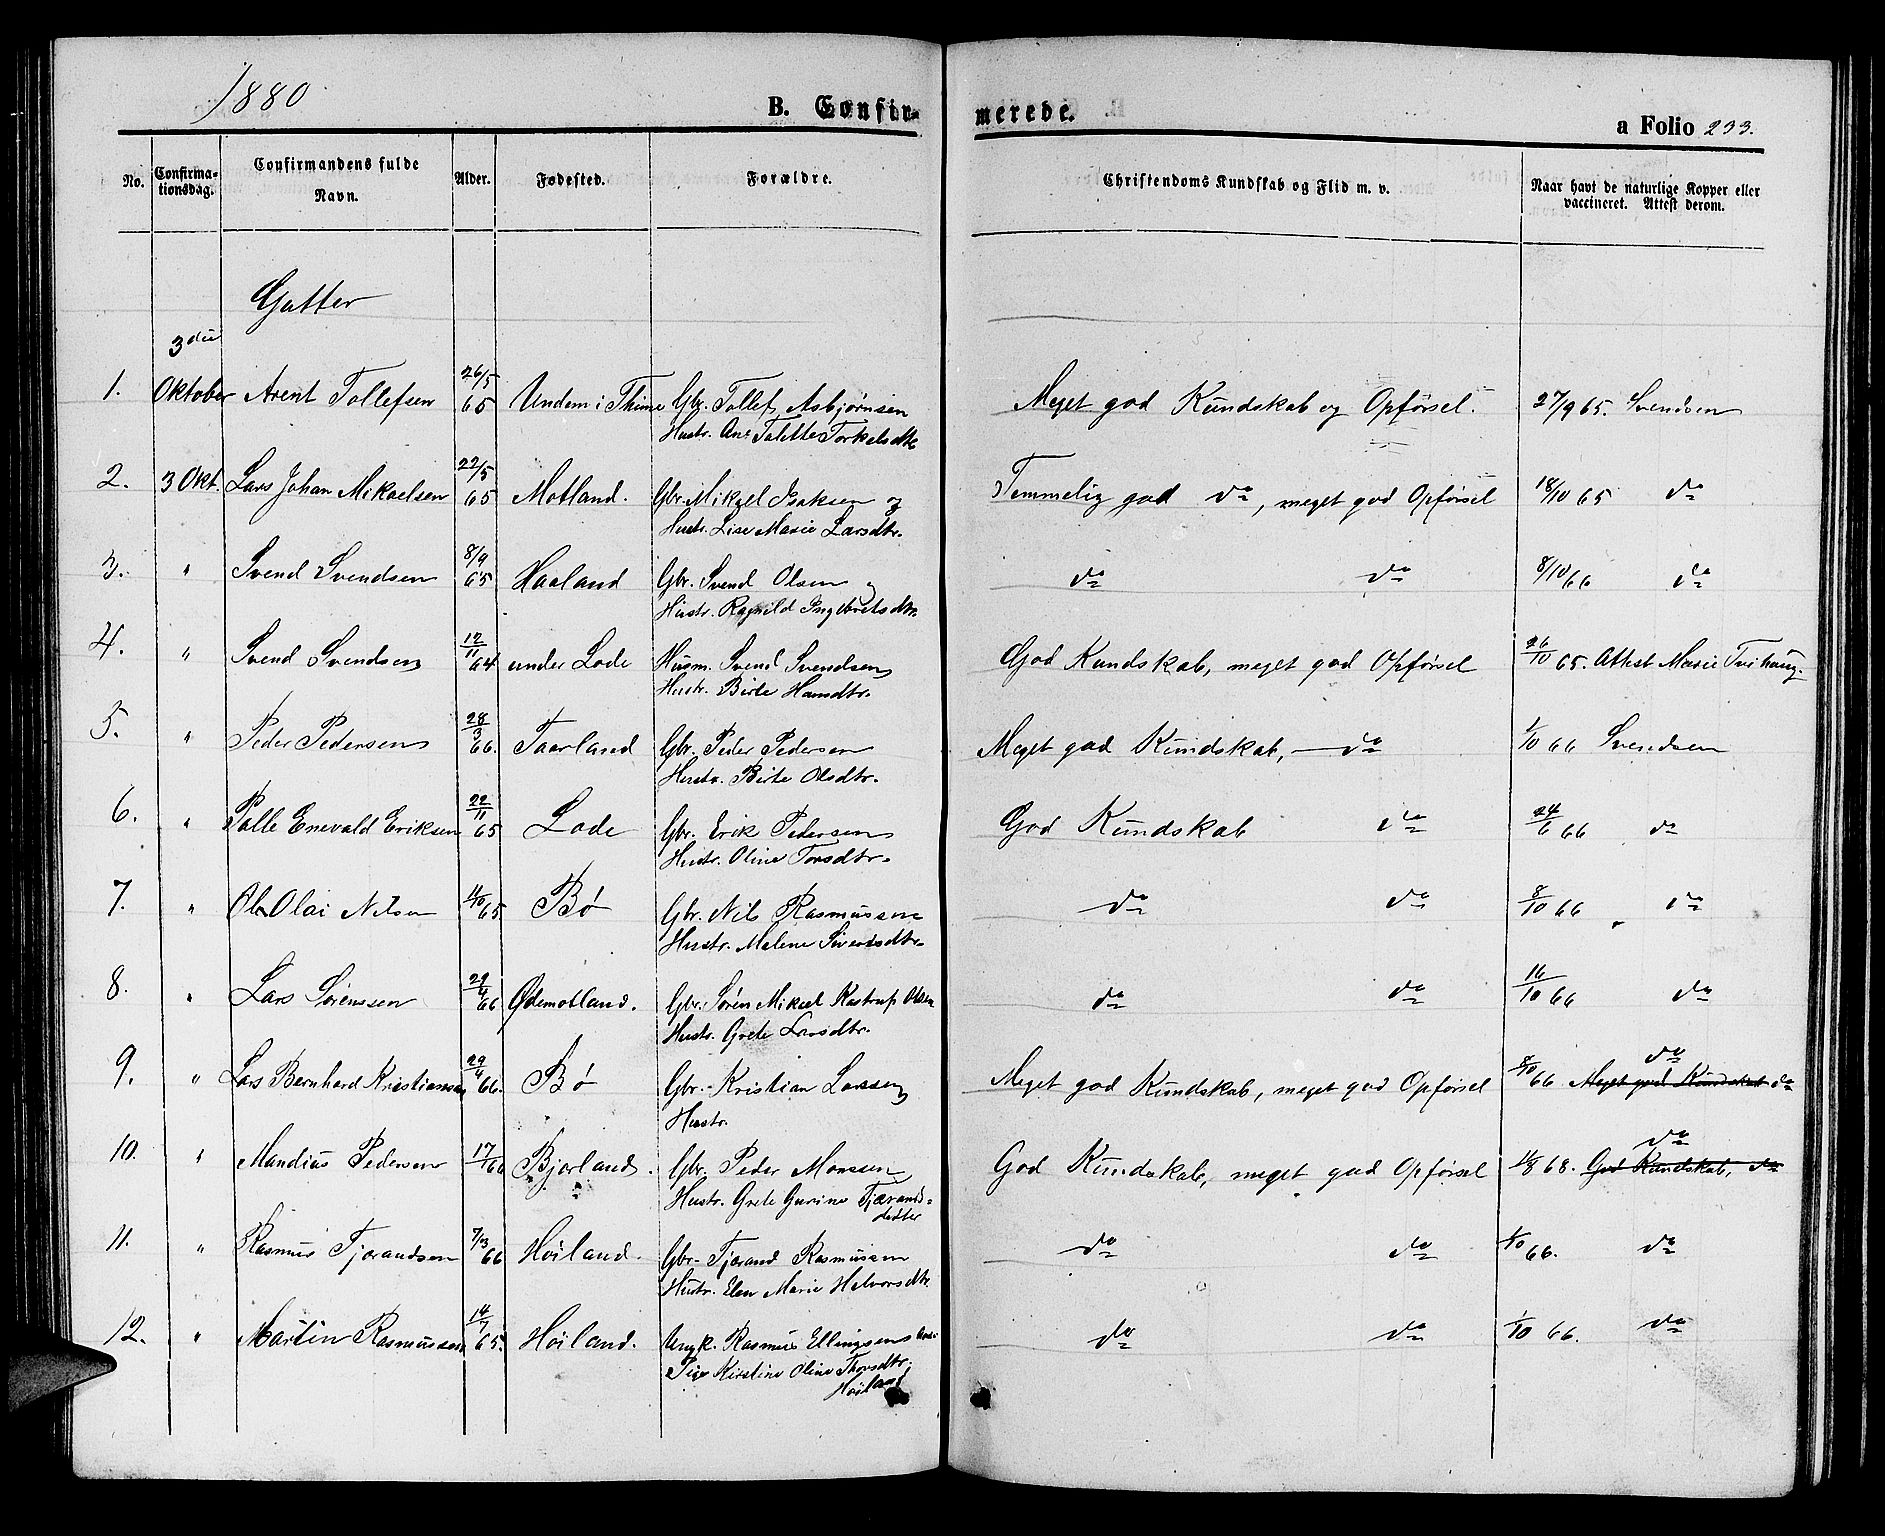 1880
B. Confir-
merede.
a Folio 233.
No. Confirma-
tionsdag. Confirmandens fulde
Navn. Alder. Fødested. Forældre. Christendoms Kundskab og Flid m. v. Naar havt de naturlige Kopper eller
vaccineret. Attest derom.
Gutter
3die
1. Oktober Arent Tollefsen 26/5 65 Undem i Thime Gbr. Tollef Asbjørnsen Meget god Kundskab og Opførsel. 27/9 65. Svendsen
Hustr. Ane Talette Torkelsdtr
2. 3 Okt. Lars Johan Mikaelsen 22/5 65 Motland. Gbr. Mikael Isaksen og Temmelig god do, meget god Opførsel 18/10 65 do
Hustr. Lise Marie Larsdtr.
3. " Svend Svendsen 8/9 65 Haaland Gbr. Svend Olsen og do do 8/10 66 do
Hustr. Ragnild Ingebretsdtr.
4. " Svend Svendsen 12/11 64 under Lode Husm. Svend Svendsen God Kundskab, meget god Opførsel 26/10 65. Attest Marie Tvihaug.
Hustr. Birte Hansdtr.
5. " Peder Pedersen 28/3 66. Taarland Gbr. Peder Pedersen Meget god Kundskab, — do 1/10 66 Svendsen
Hustr. Birte Olsdtr.
6. " Palle Enevald Eriksen 22/11 65 Lode Gbr. Erik Pedersen God Kundskab do 24/6 66 do
Hustr. Oline Torsdtr.
7. " Ole Olai Nilsen 4/10 65 Bø Gbr. Nils Rasmussen do do 8/10 66 do
Hustr. Malene Sivertsdtr.
8. " Lars Sørenssen 29/4 66 Ødemotland. Gbr. Søren Mikael Kastrup Olsen do do 16/10 66 do
Hustr. Grete Larsdtr.
9. " Lars Bernhard Kristiansen 29/4 66. Bø Gbr. Kristian Larssen Meget god Kundskab, meget god Opførsel 8/10 66 do Meget god Kundskab do
Hustr.
10. " Mandius Pedersen 17/1 66 Bjorland. Gbr. Peder Monssen God Kundskab, meget god Opførsel 11/8 68. do God Kundskab, do
Hustr. Grete Gurine Tjærands-
datter
11. " Rasmus Tjørandsen 7/3 66 Høiland. Gbr. Tjørand Rasmussen do do 1/10 66. do
Hustr. Elen Marie Halvorsdtr.
12. " Martin Rasmussen 14/7 65. Høiland. Ungk. Rasmus Ellingsen do do 1/10 66. do
Pige Kirstine Oline Thorsdtr.
Høiland